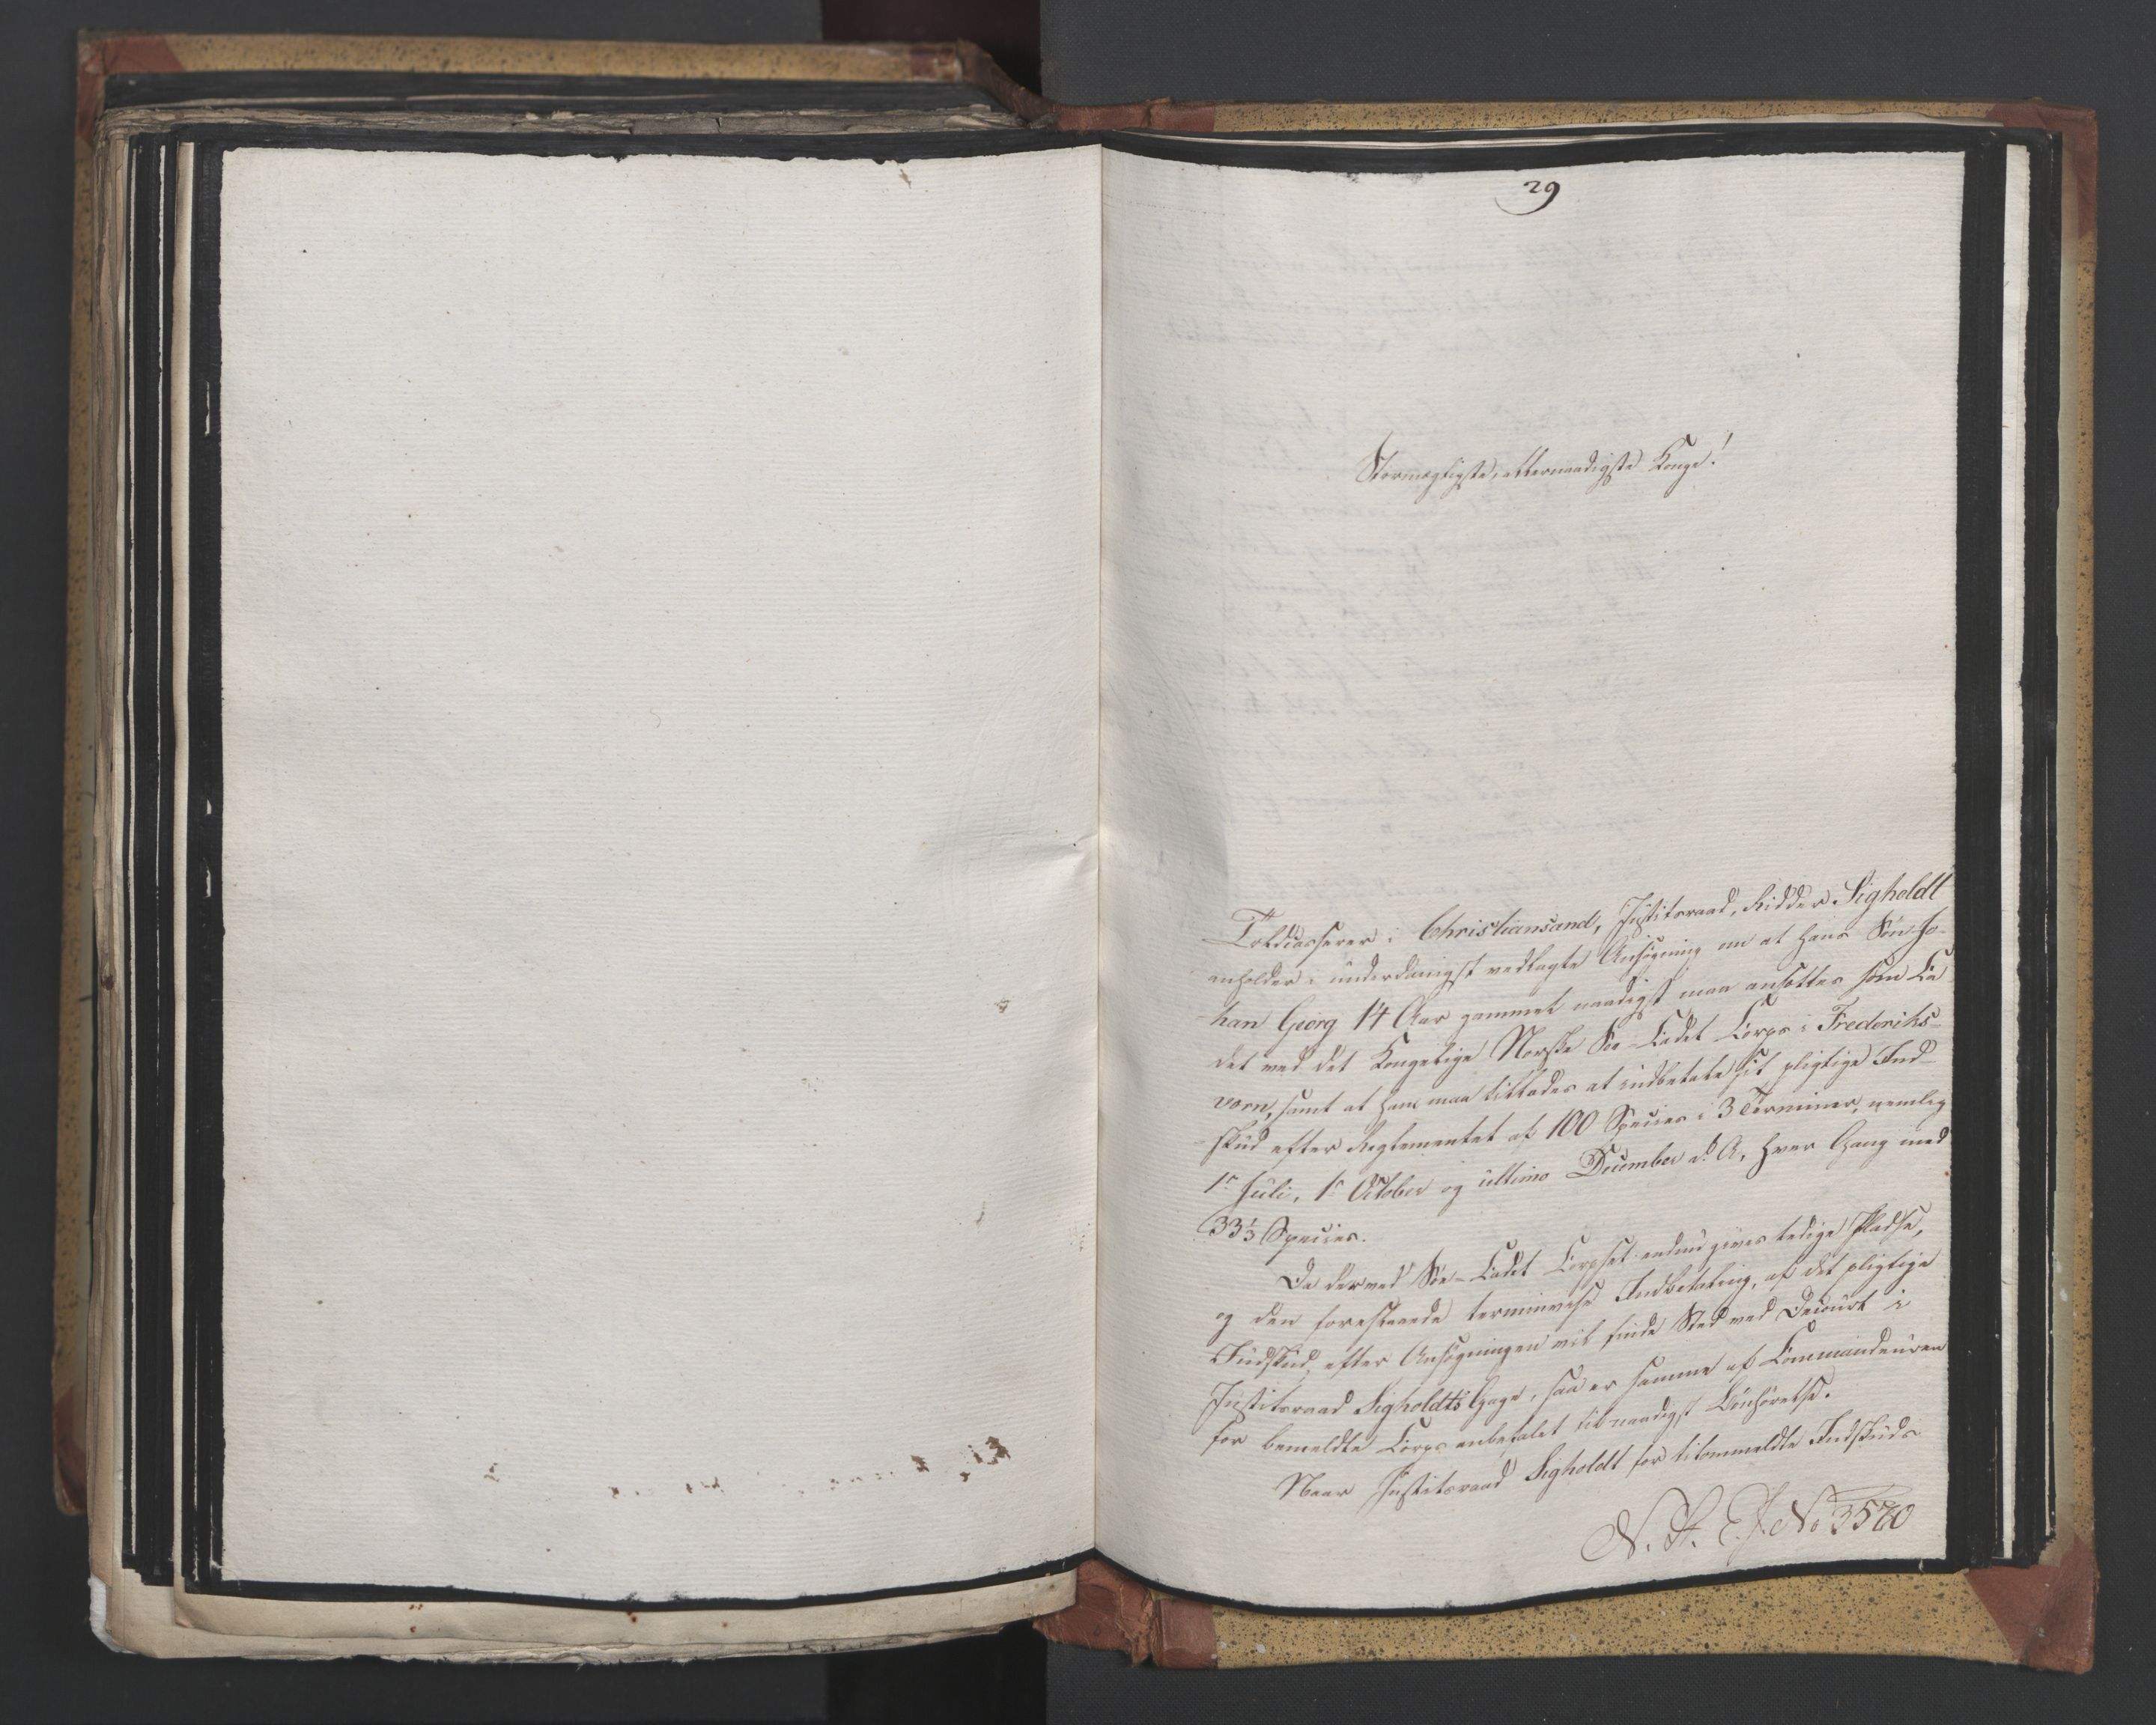 29
Stormægtigste, allernaadigste Konge!
Toldcasserer i Christiansand, Justitsraad, Ridder Sigholdt
anholder i underdanigst vedlagte Ansøgning om at hans Søn Jo-
han Georg 14 Aar gammel naadigst maa ansættes som Ca-
det ved det Kongelige Norske Søe-Cadet Corps i Frederiks-
vorn, samt at ham maa tillades at indbetale sit pligtige Ind-
skud efter Reglementet af 100 Species i 3 Terminer, nemlig
1ste Juli, 1ste October og ultimo December d. A. hver Gang med
33⅓ Species.
Da der ved Søe-Cadet Corpset endnu gives ledige Pladse,
og den forestaaende terminvise Indbetaling, af det pligtige
Indskud, efter Ansøgningen vil finde Sted ved Decourt i
Justitsraad Sigholdts Gage, saa er samme af Commandeuren
for bemeldte Corps anbefalet til naadigst Bønhørelse.
Naar Justitsraad Sigholdt for bemeldte Indskuds
No 3570